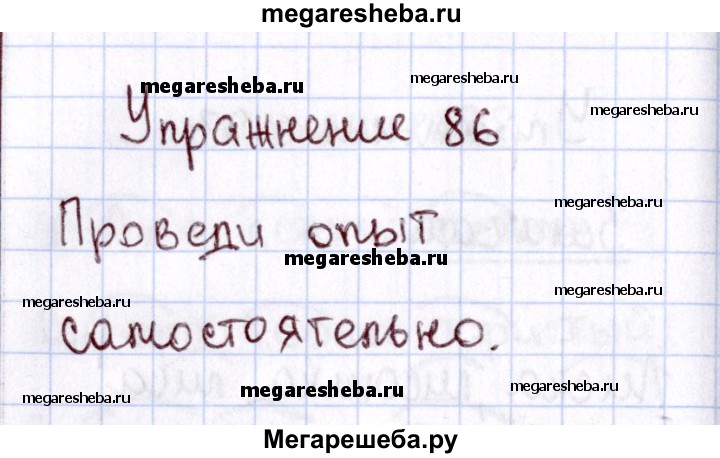 megaresheba.ru
megaresheba.ru
megaresheba.ru
megaresheba.ru
Упражнение 86
megaresheba.ru
Проведи опыт
megaresheba.ru
megaresheba.ru
megaresheba.ru
самостоятельно.
megaresheba.ru
megaresheba.ru
megaresheba.ru
Мегарешеба.ру